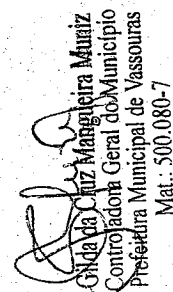 Gilda da Cruz Mangueira Muniz
Controladora Geral do Município
Prefeitura Municipal de Vassouras
Mat.: 500.080-7